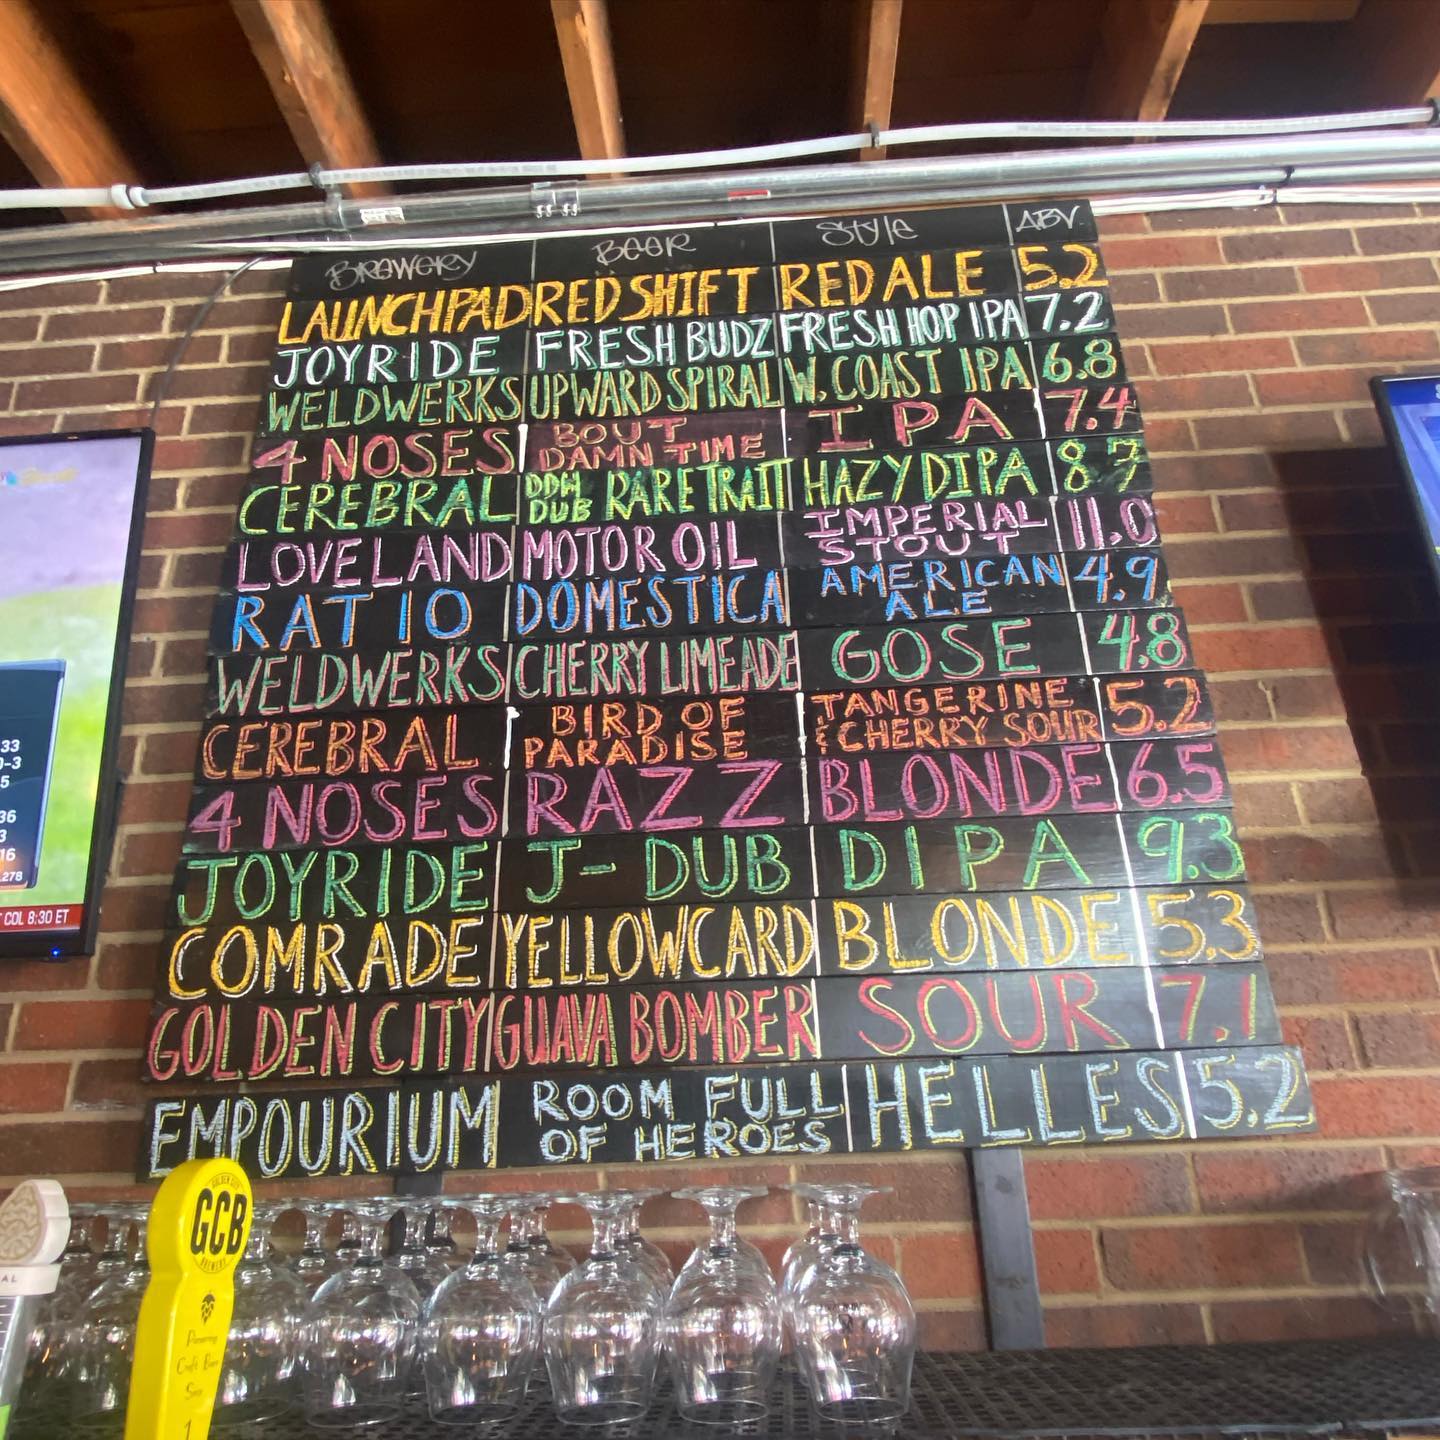 BREWERY BEER STYLE ABV
LAUNCHPAD RED SHIFT RED ALE 5.2
JOYRIDE FRESH BUDZ FRESH HOP IPA 7.2
WELDWERKS UPWARD SPIRAL W. COAST IPA 6.8
4 NOSES BOUT DAMN TIME IPA 7.4
CEREBRAL DDH DUB RARE TRAIT HAZY DIPA 8.7
LOVELAND MOTOR OIL IMPERIAL STOUT 11.0
RATIO DOMESTICA AMERICAN ALE 4.9
WELDWERKS CHERRY LIMEADE GOSE 4.8
CEREBRAL BIRD OF PARADISE TANGERINE & CHERRY SOUR 5.2
4 NOSES RAZZ BLONDE 6.5
JOYRIDE J-DUB DIPA 9.3
COMRADE YELLOWCARD BLONDE 5.3
GOLDEN CITY GUAVA BOMBER SOUR 7.1
EMPOURIUM ROOM FULL OF HEROES HELLES 5.2
33
0-3
5
36
3
16
.278
COL 8:30 ET
GOLDEN CITY
GCB
BREWERY
Pioneering
Craft Beer
Since
1
AL